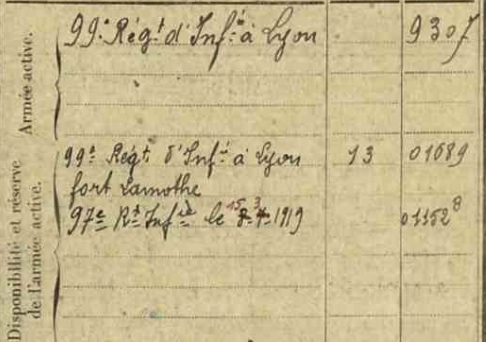 Armée active.
99e Régt d'Infie à Lyon 9307
Disponibilité et réserve
de l'armée active.
99e Régt d'Infie à Lyon 13 01689
fort Lamothe
97e Rt Infie le 15 3 1919 01152 8